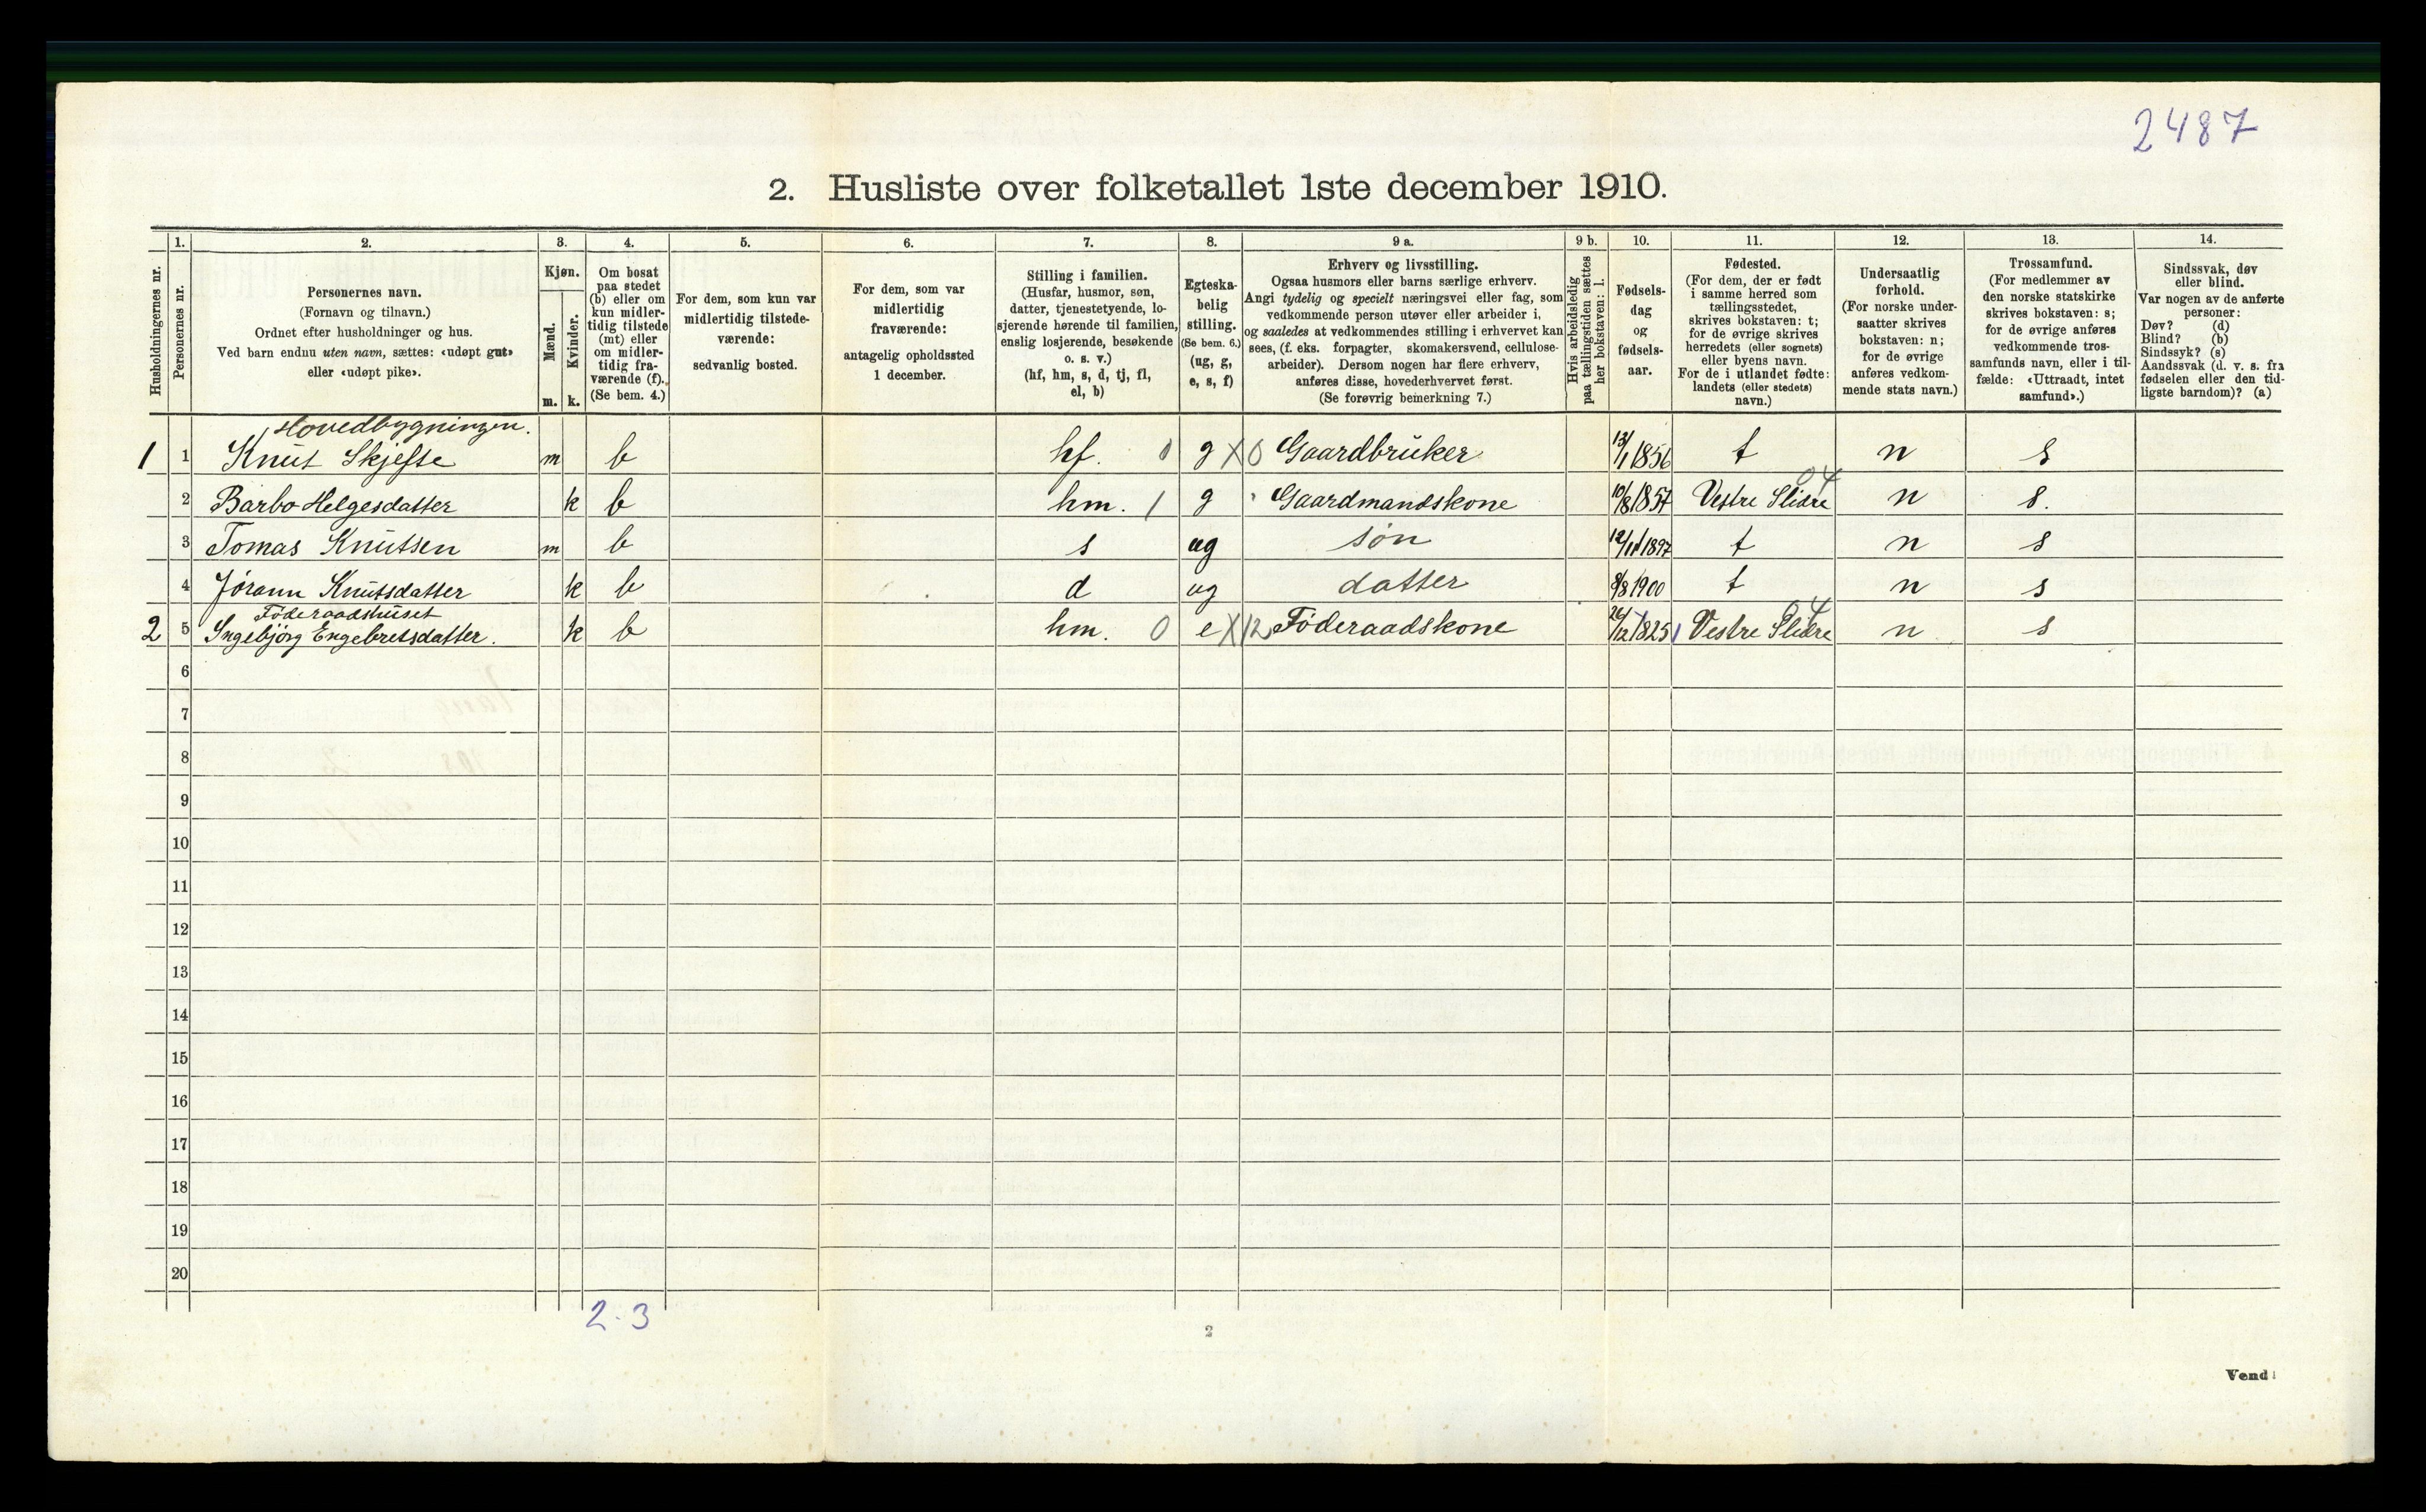 2487
2. Husliste over folketallet 1ste december 1910.
1. 2. 3. 4. 5. 6. 7. 8. 9 a. 9 b. 10. 11. 12. 13. 14.
Husholdningernes nr.
Personernes nr.
Personernes navn.
(Fornavn og tilnavn.)
Ordnet efter husholdninger og hus.
Ved barn endnu uten navn, sættes: «udøpt gut»
eller «udøpt pike».
Kjøn.
Mænd.
Kvinder.
m. k.
Om bosat
paa stedet
(b) eller om
kun midler-
tidig tilstede
(mt) eller
om midler-
tidig fra-
værende (f).
(Se bem. 4.)
For dem, som kun var
midlertidig tilstede-
værende:
sedvanlig bosted.
For dem, som var
midlertidig
fraværende:
antagelig opholdssted
1 december.
Stilling i familien.
(Husfar, husmor, søn,
datter, tjenestetyende, lo-
sjerende hørende til familien,
enslig losjerende, besøkende
o. s. v.)
(hf, hm, s, d, tj, fl,
el, b)
Egteska-
belig
stilling.
(Se bem. 6.)
(ug, g,
e, s, f)
Erhverv og livsstilling.
Ogsaa husmors eller barns særlige erhverv.
Angi tydelig og specielt næringsvei eller fag, som
vedkommende person utøver eller arbeider i,
og saaledes at vedkommendes stilling i erhvervet kan
sees, (f. eks. forpagter, skomakersvend, cellulose-
arbeider). Dersom nogen har flere erhverv,
anføres disse, hovederhvervet først.
(Se forøvrig bemerkning 7.)
Hvis arbeidsledig
paa tællingstiden sættes
her bokstaven: l.
Fødsels-
dag
og
fødsels-
aar.
Fødested.
(For dem, der er født
i samme herred som
tællingsstedet,
skrives bokstaven: t;
for de øvrige skrives
herredets (eller sognets)
eller byens navn.
For de i utlandet fødte:
landets (eller stedets)
navn.)
Undersaatlig
forhold.
(For norske under-
saatter skrives
bokstaven: n;
for de øvrige
anføres vedkom-
mende stats navn.)
Trossamfund.
(For medlemmer av
den norske statskirke
skrives bokstaven: s;
for de øvrige anføres
vedkommende tros-
samfunds navn, eller i til-
fælde: «Uttraadt, intet
samfund».)
Sindssvak, døv
eller blind.
Var nogen av de anførte
personer:
Døv? (d)
Blind? (b)
Sindssyk? (s)
Aandssvak (d. v. s. fra
fødselen eller den tid-
ligste barndom)? (a)
Hovedbygningen.
1 1 Knut Skjefte m b hf. 0 g X 0 Gaardbruker 13/1 1856 t n s
04
2 Barbo Helgesdatter k b hm. 1 g Gaardmandskone 10/8 1857 Vestre Slidre n s.
3 Tomas Knutsen m b s ug søn 12/11 1897 t n s
4 Jørann Knutsdatter k b d ug datter 8/8 1900 t n s
Föderaadshuset 04
2 5 Ingebjörg Engebretsdatter. k b hm. 0 e X 12 Föderaadskone 26/12 1825 Vestre Slidre n s
6
7
8
9
10
11
12
13
14
15
16
17
18
19
20
2-3
2
Vend!